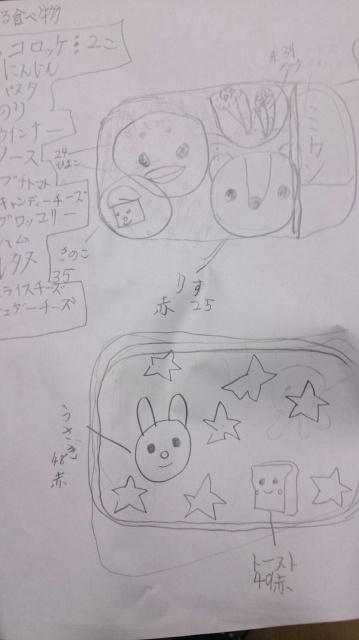 る食べ物
コロッケ:2こ
にんじん
パスタ
のり
ウインナー
ソース
プチトマト
キャンディーチーズ
ブロッコリー
ハム
レタス
スライスチーズ
チェダーチーズ
ミカン
24
ひよこ
きのこ
35
りす
赤 25
うさぎ
48
赤
トースト
40赤